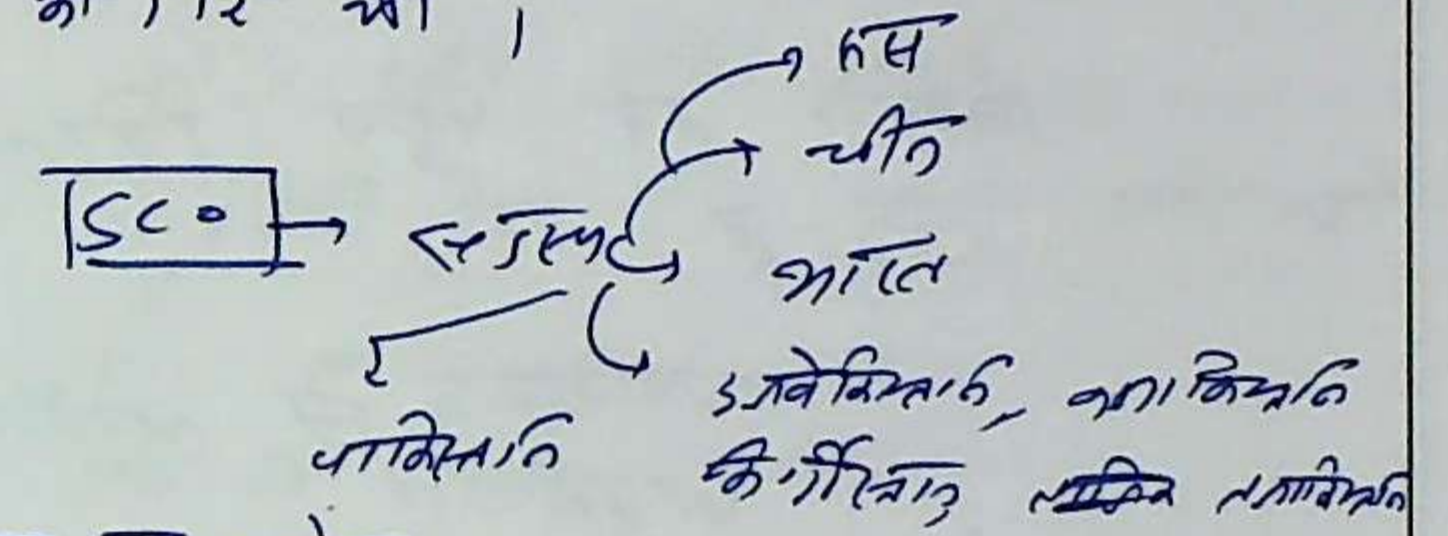 रूस
चीन
SCO → सदस्य
भारत
उज्बेकिस्तान, कजाकिस्तान
पाकिस्तान
किर्गिस्तान, तजाकिस्तान